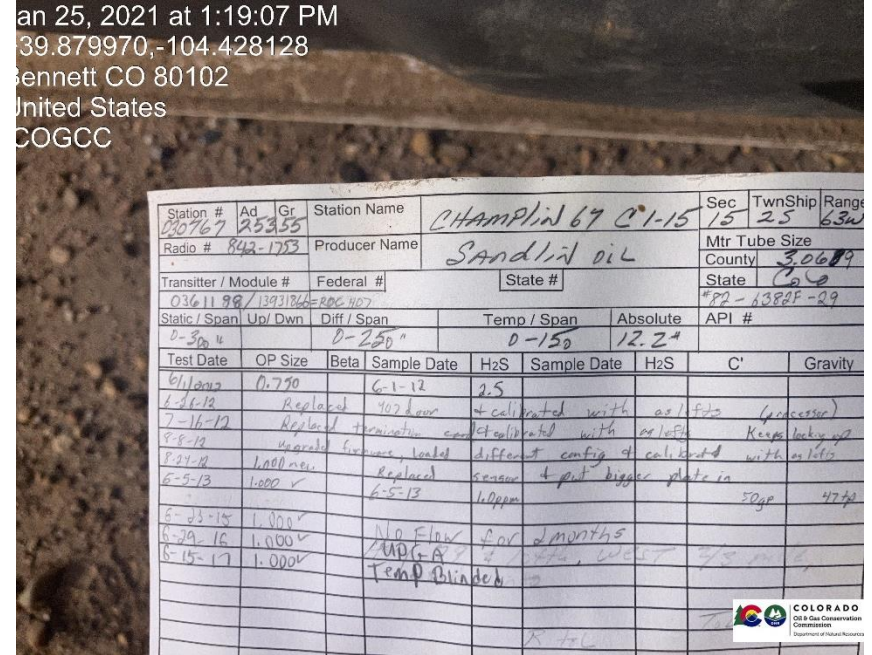 an 25, 2021 at 1:19:07 PM
39.879970,-104.428128
Bennett CO 80102
United States
COGCC
Station # Ad Gr Station Name CHAMPLIN 67 C 1-15 Sec TwnShip Range
030767 253 55 15 2S 63W
Radio # 842-1753 Producer Name SANDLIN OIL Mtr Tube Size
County 3.0689
Transitter / Module # Federal # State # State Colo
0361198/13931866=ROC 407 #82-6382F-29
Static / Span Up/ Dwn Diff / Span Temp / Span Absolute API #
0-300 # 0-250" 0-150 12.2#
Test Date OP Size Beta Sample Date H2S Sample Date H2S C' Gravity
6/1/2012 0.750 6-1-12 2.5
6-26-12 Replaced 407 door + calibrated with as lefts (processor)
7-16-12 Replaced termination card + calibrated with as lefts Keeps locking up
8-8-12 upgraded firmware, loaded different config + calibrated with as lefts
8-24-12 1.000 new Replaced sensor + put bigger plate in
6-5-13 1.000 ✓ 6-5-13 1.0ppm 50gp 47tp
6-23-15 1.000 ✓
6-29-16 1.000 ✓ No Flow for 2 months
6-15-17 1.000 ✓ UPGA WEST
Temp Blinded
COLORADO
Oil & Gas Conservation
Commission
Department of Natural Resources